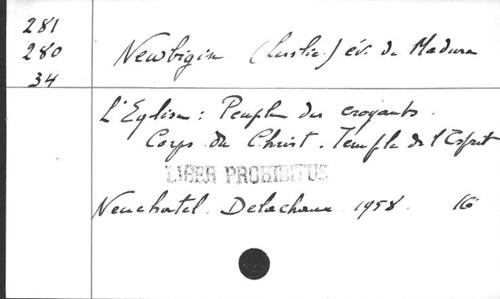 281
280
34
Newbigin (Leslie) év. de Madura
L'Eglise : Peuple des croyants.
Corps du Christ. Temple de l'Esprit
LIBER PROHIBITUS
Neuchatel. Delachaux 1958. 16